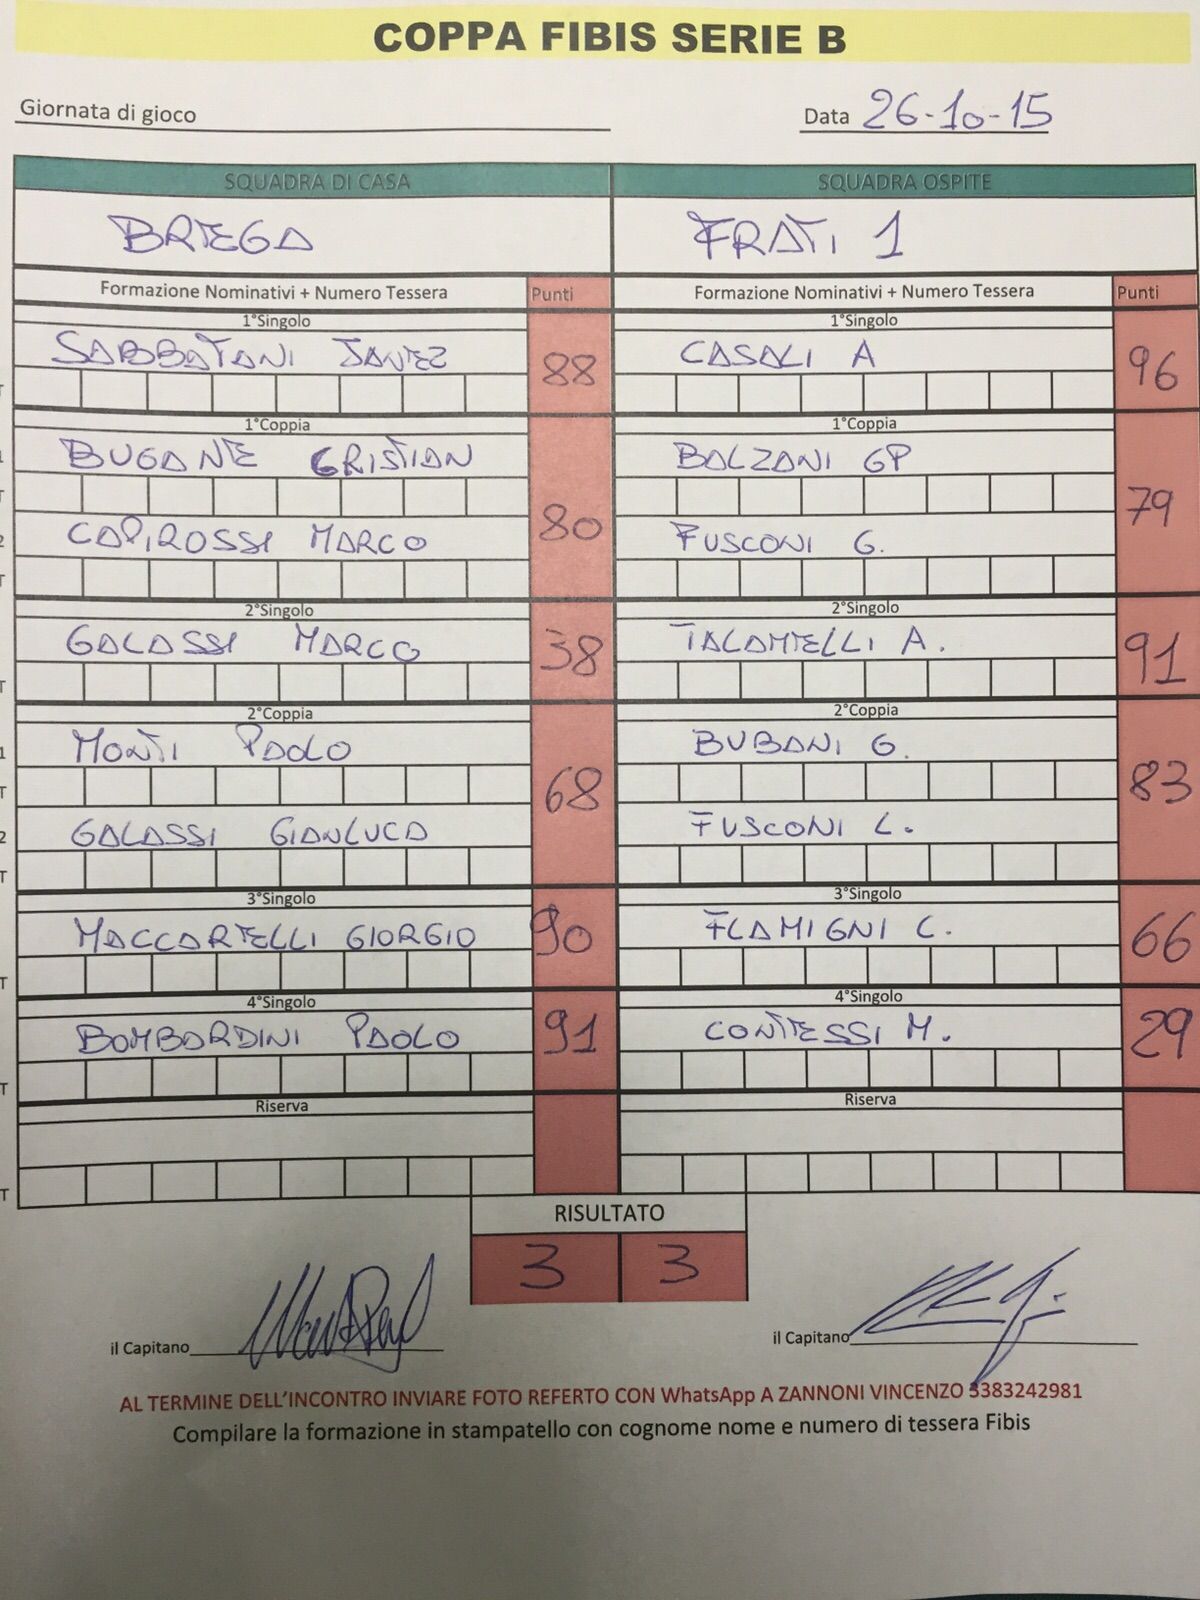 COPPA FIBIS SERIE B
Giornata di gioco
Data 26-10-15
SQUADRA DI CASA SQUADRA OSPITE
BRTEGA FRATI 1
Formazione Nominativi + Numero Tessera Punti Formazione Nominativi + Numero Tessera Punti
1°Singolo 1°Singolo
SABBATANI JANEZ 88 CASALI A 96
1°Coppia 1°Coppia
BUGANE CRISTIAN BALZANI GP
80 79
CAPIROSSI MARCO FUSCONI G.
2°Singolo 2°Singolo
GALASSI MARCO 38 TALAMELLI A. 91
2°Coppia 2°Coppia
MONTI PAOLO BUBANI G.
68 83
GALASSI GIANLUCA FUSCONI L.
3°Singolo 3°Singolo
MACCARELLI GIORGIO 90 FLAMIGNI C. 66
4°Singolo 4°Singolo
BOMBARDINI PAOLO 91 CONTESSI M. 29
Riserva Riserva
RISULTATO
3 3
il Capitano il Capitano
AL TERMINE DELL'INCONTRO INVIARE FOTO REFERTO CON WhatsApp A ZANNONI VINCENZO 3383242981
Compilare la formazione in stampatello con cognome nome e numero di tessera Fibis